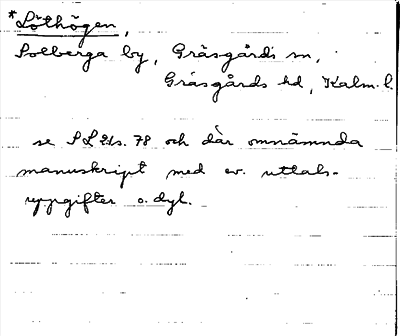 *Löthögen,
Solberga by, Gräsgårds sn,
Gräsgårds hd, Kalm. l.
se SL s. 78 och där omnämnda
manuskript med ev. uttals-
uppgifter o. dyl.